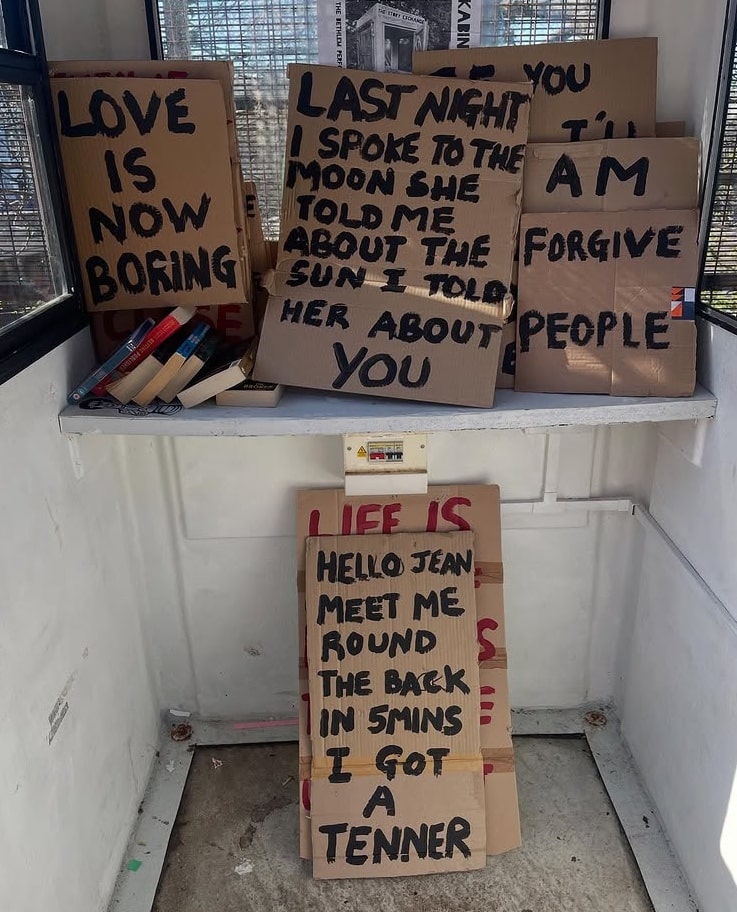 THE STORY EXCHANGE
LOVE
IS
NOW
BORING
LAST NIGHT
I SPOKE TO THE
MOON SHE
TOLD ME
ABOUT THE
SUN I TOLD
HER ABOUT
YOU
YOU
I'LL
AM
FORGIVE
PEOPLE
LIFE IS
HELLO JEAN
MEET ME
ROUND
THE BACK
IN 5MINS
I GOT
A
TENNER